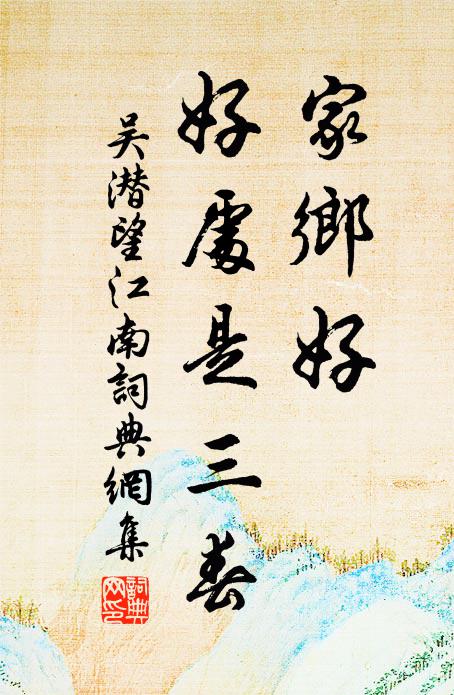 家鄉好
好處是三春
吴潜望江南詞典網集
詞典